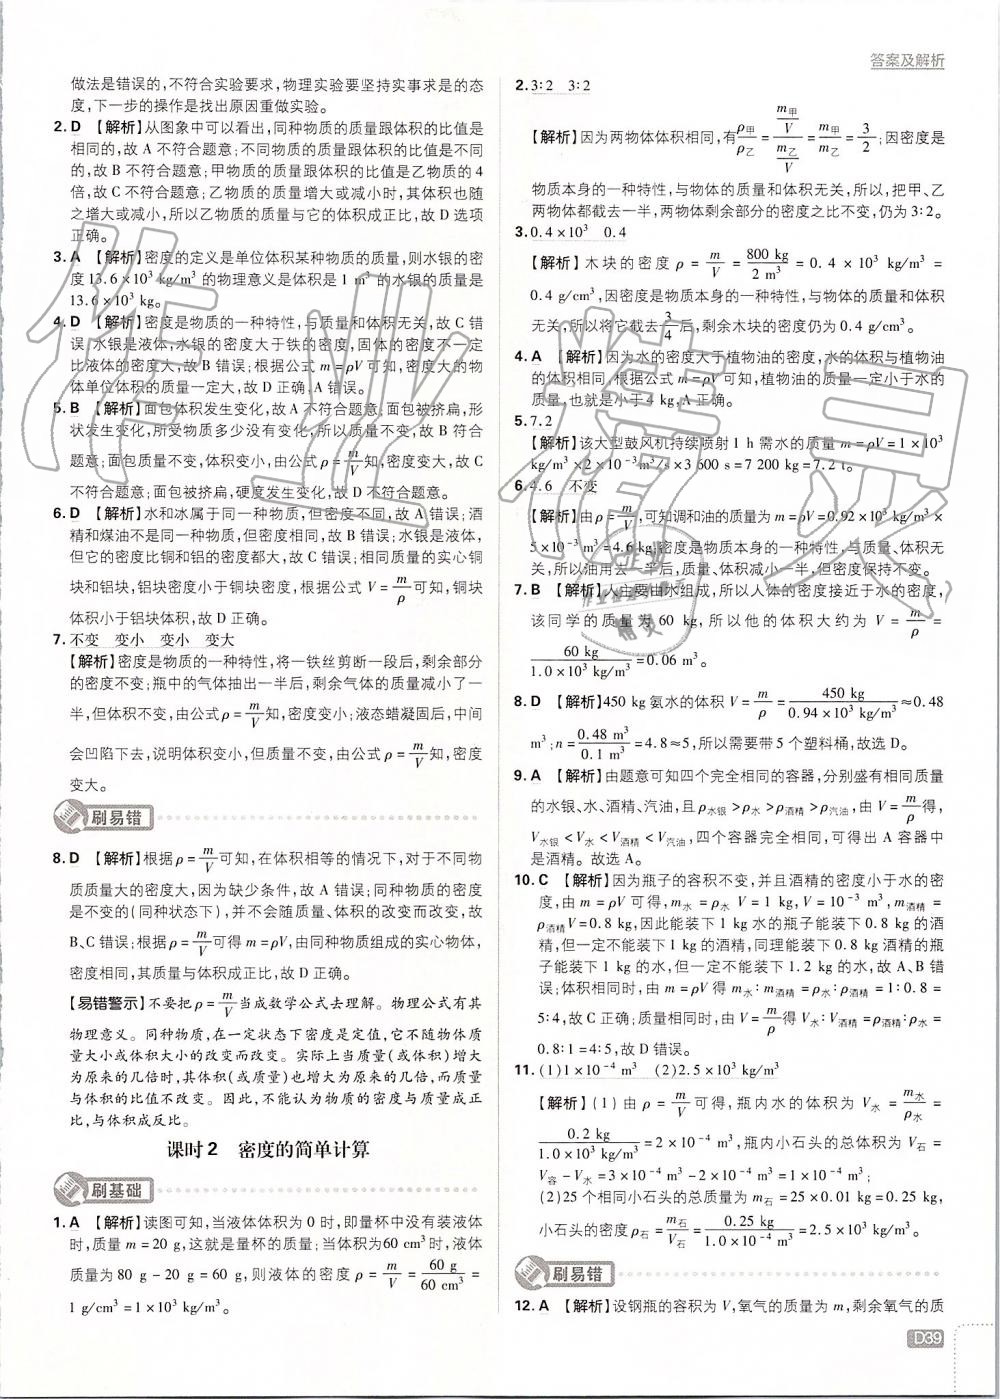 答案及解析
做法是错误的,不符合实验要求,物理实验要坚持实事求是的态
度,下一步的操作是找出原因重做实验。
2. D 【解析】从图象中可以看出,同种物质的质量跟体积的比值是
相同的,故 A 不符合题意;不同物质的质量跟体积的比值是不同
的,故 B 不符合题意;甲物质的质量跟体积的比值是乙物质的 4
倍,故 C 不符合题意;乙物质的质量增大或减小时,其体积也随
之增大或减小,所以乙物质的质量与它的体积成正比,故 D 选项
正确。
3. A 【解析】密度的定义是单位体积某种物质的质量,则水银的密
度 13.6×10³ kg/m³ 的物理意义是体积是 1 m³ 的水银的质量是
13.6×10³ kg。
4. D 【解析】密度是物质的一种特性,与质量和体积无关,故 C 错
误;水银是液体,水银的密度大于铁的密度,固体的密度不一定
比液体的密度大,故 B 错误;根据公式 m=ρV 可知,密度大的物
体单位体积的质量一定大,故 D 正确,A 错误。
5. B 【解析】面包体积发生变化,故 A 不符合题意;面包被挤扁,形
状发生变化,所受物质多少没有变化,质量不变,故 B 符合
题意;面包质量不变,体积变小,由公式 ρ=m/V 可知,密度变大,故 C
不符合题意;面包被挤扁,硬度发生变化,故 D 不符合题意。
6. D 【解析】水和冰属于同一种物质,但密度不同,故 A 错误;酒
精和煤油不是同一种物质,但密度相同,故 B 错误;水银是液体,
但它的密度比铜和铝的密度都大,故 C 错误;相同质量的实心铜
块和铝块,铝块密度小于铜块密度,根据公式 V=m/ρ 可知,铜块
体积小于铝块体积,故 D 正确。
7. 不变 变小 变小 变大
【解析】密度是物质的一种特性,将一铁丝剪断一段后,剩余部分
的密度不变;瓶中的气体抽出一半后,剩余气体的质量减小了一
半,但体积不变,由公式 ρ=m/V 知,密度变小;液态蜡凝固后,中间
会凹陷下去,说明体积变小,但质量不变,由公式 ρ=m/V 知,密度
变大。
刷易错
8. D 【解析】根据 ρ=m/V 可知,在体积相等的情况下,对于不同物
质质量大的密度大,因为缺少条件,故 A 错误;同种物质的密度
是不变的(同种状态下),并不会随质量、体积的改变而改变,故
B、C 错误;根据 ρ=m/V 可得 m=ρV,由同种物质组成的实心物体,
密度相同,其质量与体积成正比,故 D 正确。
【易错警示】不要把 ρ=m/V 当成数学公式去理解。物理公式有其
物理意义。同种物质,在一定状态下密度是定值,它不随物体质
量大小或体积大小的改变而改变。实际上当质量(或体积)增大
为原来的几倍时,其体积(或质量)也增大为原来的几倍,而质量
与体积的比值不改变。因此,不能认为物质的密度与质量成正
比,与体积成反比。
课时 2 密度的简单计算
刷基础
1. A 【解析】读图可知,当液体体积为 0 时,即量杯中没有装液体
时,质量 m=20 g,这就是量杯的质量;当体积为60 cm³时,液体
质量为 80 g-20 g=60 g,则液体的密度 ρ=m/V=60 g/60 cm³=
1 g/cm³=1×10³ kg/m³。
2. 3∶2 3∶2
【解析】因为两物体体积相同,有ρ甲/ρ乙=(m甲/V)/(m乙/V)=m甲/m乙=3/2;因密度是
物质本身的一种特性,与物体的质量和体积无关,所以,把甲、乙
两物体都截去一半,两物体剩余部分的密度之比不变,仍为 3∶2。
3. 0.4×10³ 0.4
【解析】木块的密度 ρ=m/V=800 kg/2 m³=0.4×10³ kg/m³=
0.4 g/cm³,因密度是物质本身的一种特性,与物体的质量和体积
无关,所以将它截去3/4后,剩余木块的密度仍为 0.4 g/cm³。
4. A 【解析】因为水的密度大于植物油的密度,水的体积与植物油
的体积相同,根据公式 m=ρV 可知,植物油的质量一定小于水的
质量,也就是小于 4 kg,A 正确。
5. 7.2
【解析】该大型鼓风机持续喷射 1 h 需水的质量 m=ρV=1×10³
kg/m³×2×10⁻³m³/s×3 600 s=7 200 kg=7.2 t。
6. 4.6 不变
【解析】由 ρ=m/V,可知调和油的质量为 m=ρV=0.92×10³ kg/m³×
5×10⁻³ m³=4.6 kg;密度是物质本身的一种特性,与质量、体积无
关,所以油用去一半后,质量、体积减小一半,但密度保持不变。
7. B 【解析】人主要由水组成,所以人体的密度接近于水的密度,
该同学的质量为 60 kg,所以他的体积大约为 V=m/ρ=
60 kg/1.0×10³ kg/m³=0.06 m³。
8. D 【解析】450 kg 氨水的体积 V=m/ρ=450 kg/0.94×10³ kg/m³≈0.48
m³;n=0.48 m³/0.1 m³=4.8≈5,所以需要带 5 个塑料桶,故选 D。
9. A 【解析】由题意可知四个完全相同的容器,分别盛有相同质量
的水银、水、酒精、汽油,且ρ水银>ρ水>ρ酒精>ρ汽油,由 V=m/ρ得,
V水银<V水<V酒精<V汽油,四个容器完全相同,可得出 A 容器中
是酒精。故选 A。
10. C 【解析】因为瓶子的容积不变,并且酒精的密度小于水的密
度,由 m=ρV 可得,m水=ρ水 V=1 kg,V=10⁻³ m³,m酒精=
ρ酒精V=0.8 kg,因此能装下 1 kg 水的瓶子能装下 0.8 kg 的酒
精,但一定不能装下 1 kg 的酒精,同理能装下 0.8 kg 酒精的瓶
子能装下 1 kg 的水,但一定不能装下 1.2 kg 的水,故 A、B 错
误;体积相同时,由 m=ρV 得 m水∶m酒精=ρ水∶ρ酒精=1∶0.8=
5∶4,故 C 正确;质量相同时,由 V=m/ρ得 V水∶V酒精=ρ酒精∶ρ水=
0.8∶1=4∶5,故 D 错误。
11. (1)1×10⁻⁴ m³ (2)2.5×10³ kg/m³
【解析】(1)由 ρ=m/V 可得,瓶内水的体积为 V水=m水/ρ水=
0.2 kg/1.0×10³ kg/m³=2×10⁻⁴ m³,瓶内小石头的总体积为 V石=
V容-V水=3×10⁻⁴ m³-2×10⁻⁴ m³=1×10⁻⁴ m³;
(2)25 个相同小石头的总质量为 m石=25×0.01 kg=0.25 kg,
小石头的密度ρ石=m石/V石=0.25 kg/1.0×10⁻⁴ m³=2.5×10³ kg/m³。
刷易错
12. A 【解析】设钢瓶的容积为 V,氧气的质量为 m,剩余氧气的质
D39
作业精灵